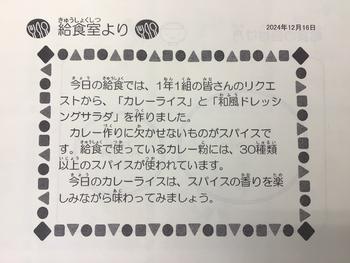 給食室より
2024年12月16日
今日の給食では、1年1組の皆さんのリクエ
ストから、「カレーライス」と「和風ドレッシ
ングサラダ」を作りました。
カレー作りに欠かせないものがスパイスで
す。給食で使っているカレー粉には、30種類
以上のスパイスが使われています。
今日のカレーライスは、スパイスの香りを楽
しみながら味わってみましょう。